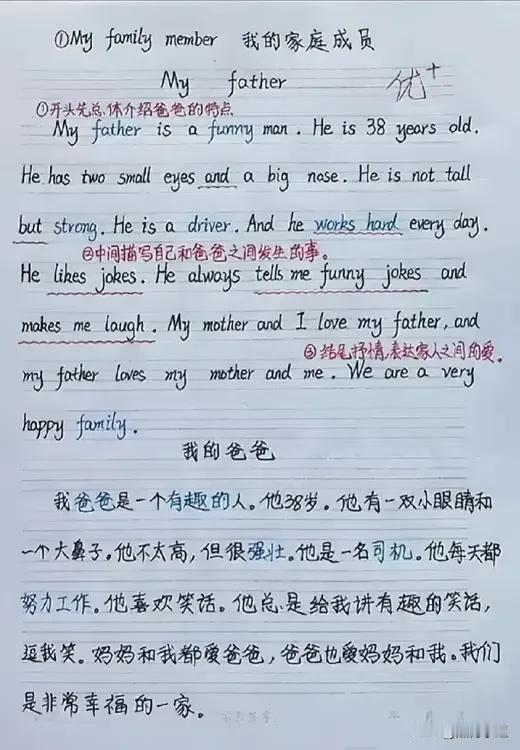 ①My family member 我的家庭成员
My father
优+
①开头先总体介绍爸爸的特点
My father is a funny man. He is 38 years old.
He has two small eyes and a big nose. He is not tall
but strong. He is a driver. And he works hard every day.
②中间描写自己和爸爸之间发生的事。
He likes jokes. He always tells me funny jokes and
makes me laugh. My mother and I love my father, and
③结尾抒情,表达家人之间的爱。
my father loves my mother and me. We are a very
happy family.
我的爸爸
我爸爸是一个有趣的人。他38岁。他有一双小眼睛和
一个大鼻子。他不太高,但很强壮。他是一名司机。他每天都
努力工作。他喜欢笑话。他总是给我讲有趣的笑话,
逗我笑。妈妈和我都爱爸爸,爸爸也爱妈妈和我。我们
是非常幸福的一家。
年 月 日